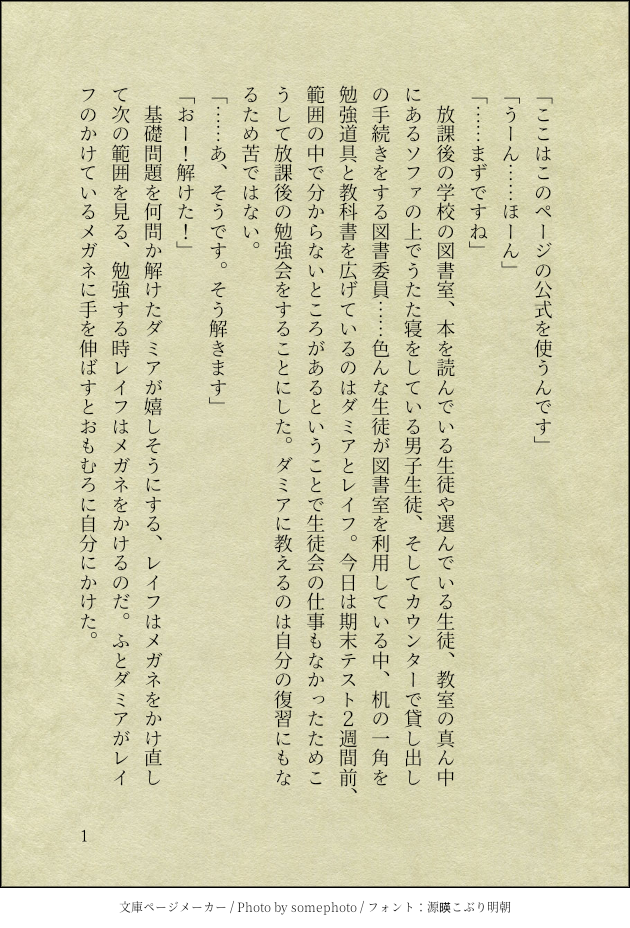 「ここはこのページの公式を使うんです」
「うーん……ほーん」
「……まずですね」
　放課後の学校の図書室、本を読んでいる生徒や選んでいる生徒、教室の真ん中
にあるソファの上でうたた寝をしている男子生徒、そしてカウンターで貸し出し
の手続きをする図書委員……色んな生徒が図書室を利用している中、机の一角を
勉強道具と教科書を広げているのはダミアとレイフ。今日は期末テスト２週間前、
範囲の中で分からないところがあるということで生徒会の仕事もなかったためこ
うして放課後の勉強会をすることにした。ダミアに教えるのは自分の復習にもな
るため苦ではない。
「……あ、そうです。そう解きます」
「おー！解けた！」
　基礎問題を何問か解けたダミアが嬉しそうにする、レイフはメガネをかけ直し
て次の範囲を見る、勉強する時レイフはメガネをかけるのだ。ふとダミアがレイ
フのかけているメガネに手を伸ばすとおもむろに自分にかけた。
1
文庫ページメーカー / Photo by somephoto / フォント：源暎こぶり明朝